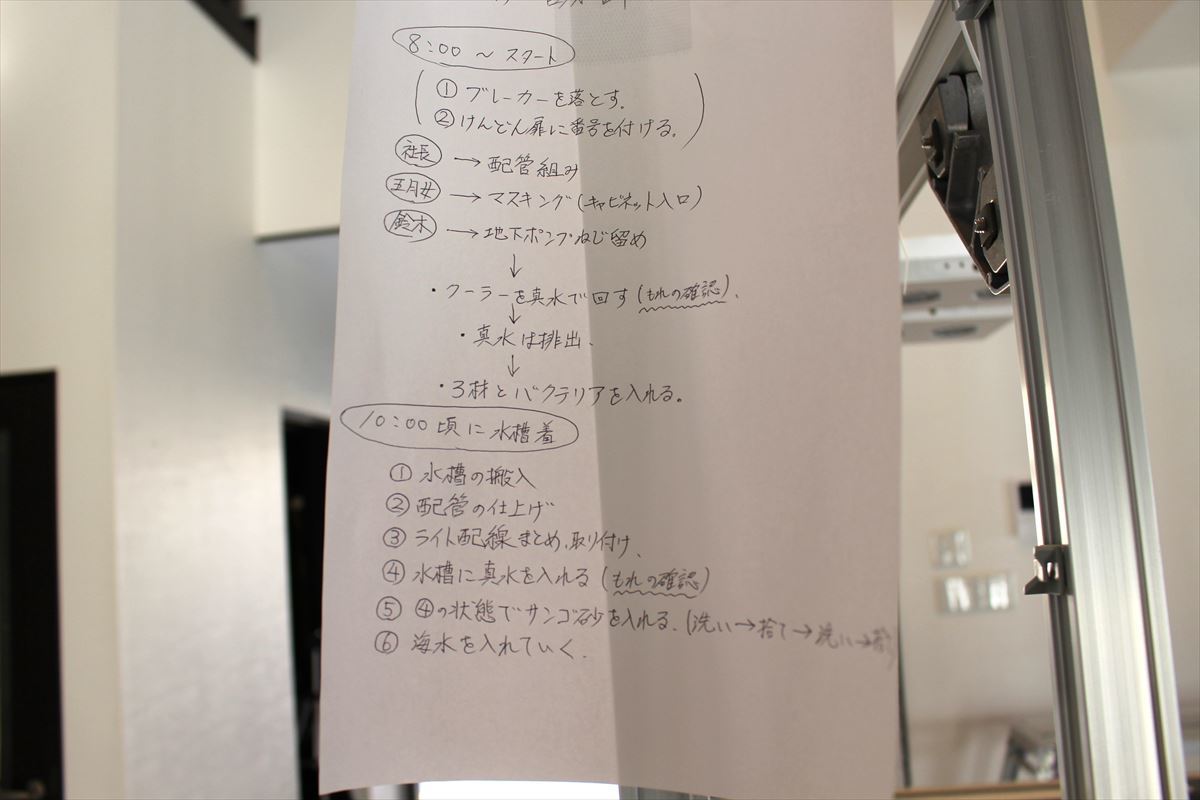 8:00 ~ スタート
① ブレーカーを落とす.
② けんどん扉に番号を付ける.
社長 → 配管組み
五月女 → マスキング(キャビネット入口)
鈴木 → 地下ポンプねじ留め
↓
・クーラーを真水で回す(もれの確認).
↓
・真水は排出.
↓
・ろ材とバクテリアを入れる。
10:00頃に水槽着
① 水槽の搬入
② 配管の仕上げ
③ ライト配線まとめ,取り付け.
④ 水槽に真水を入れる(もれの確認)
⑤ ④の状態でサンゴ砂を入れる.(洗い→捨て→洗い→捨て)
⑥ 海水を入れていく.